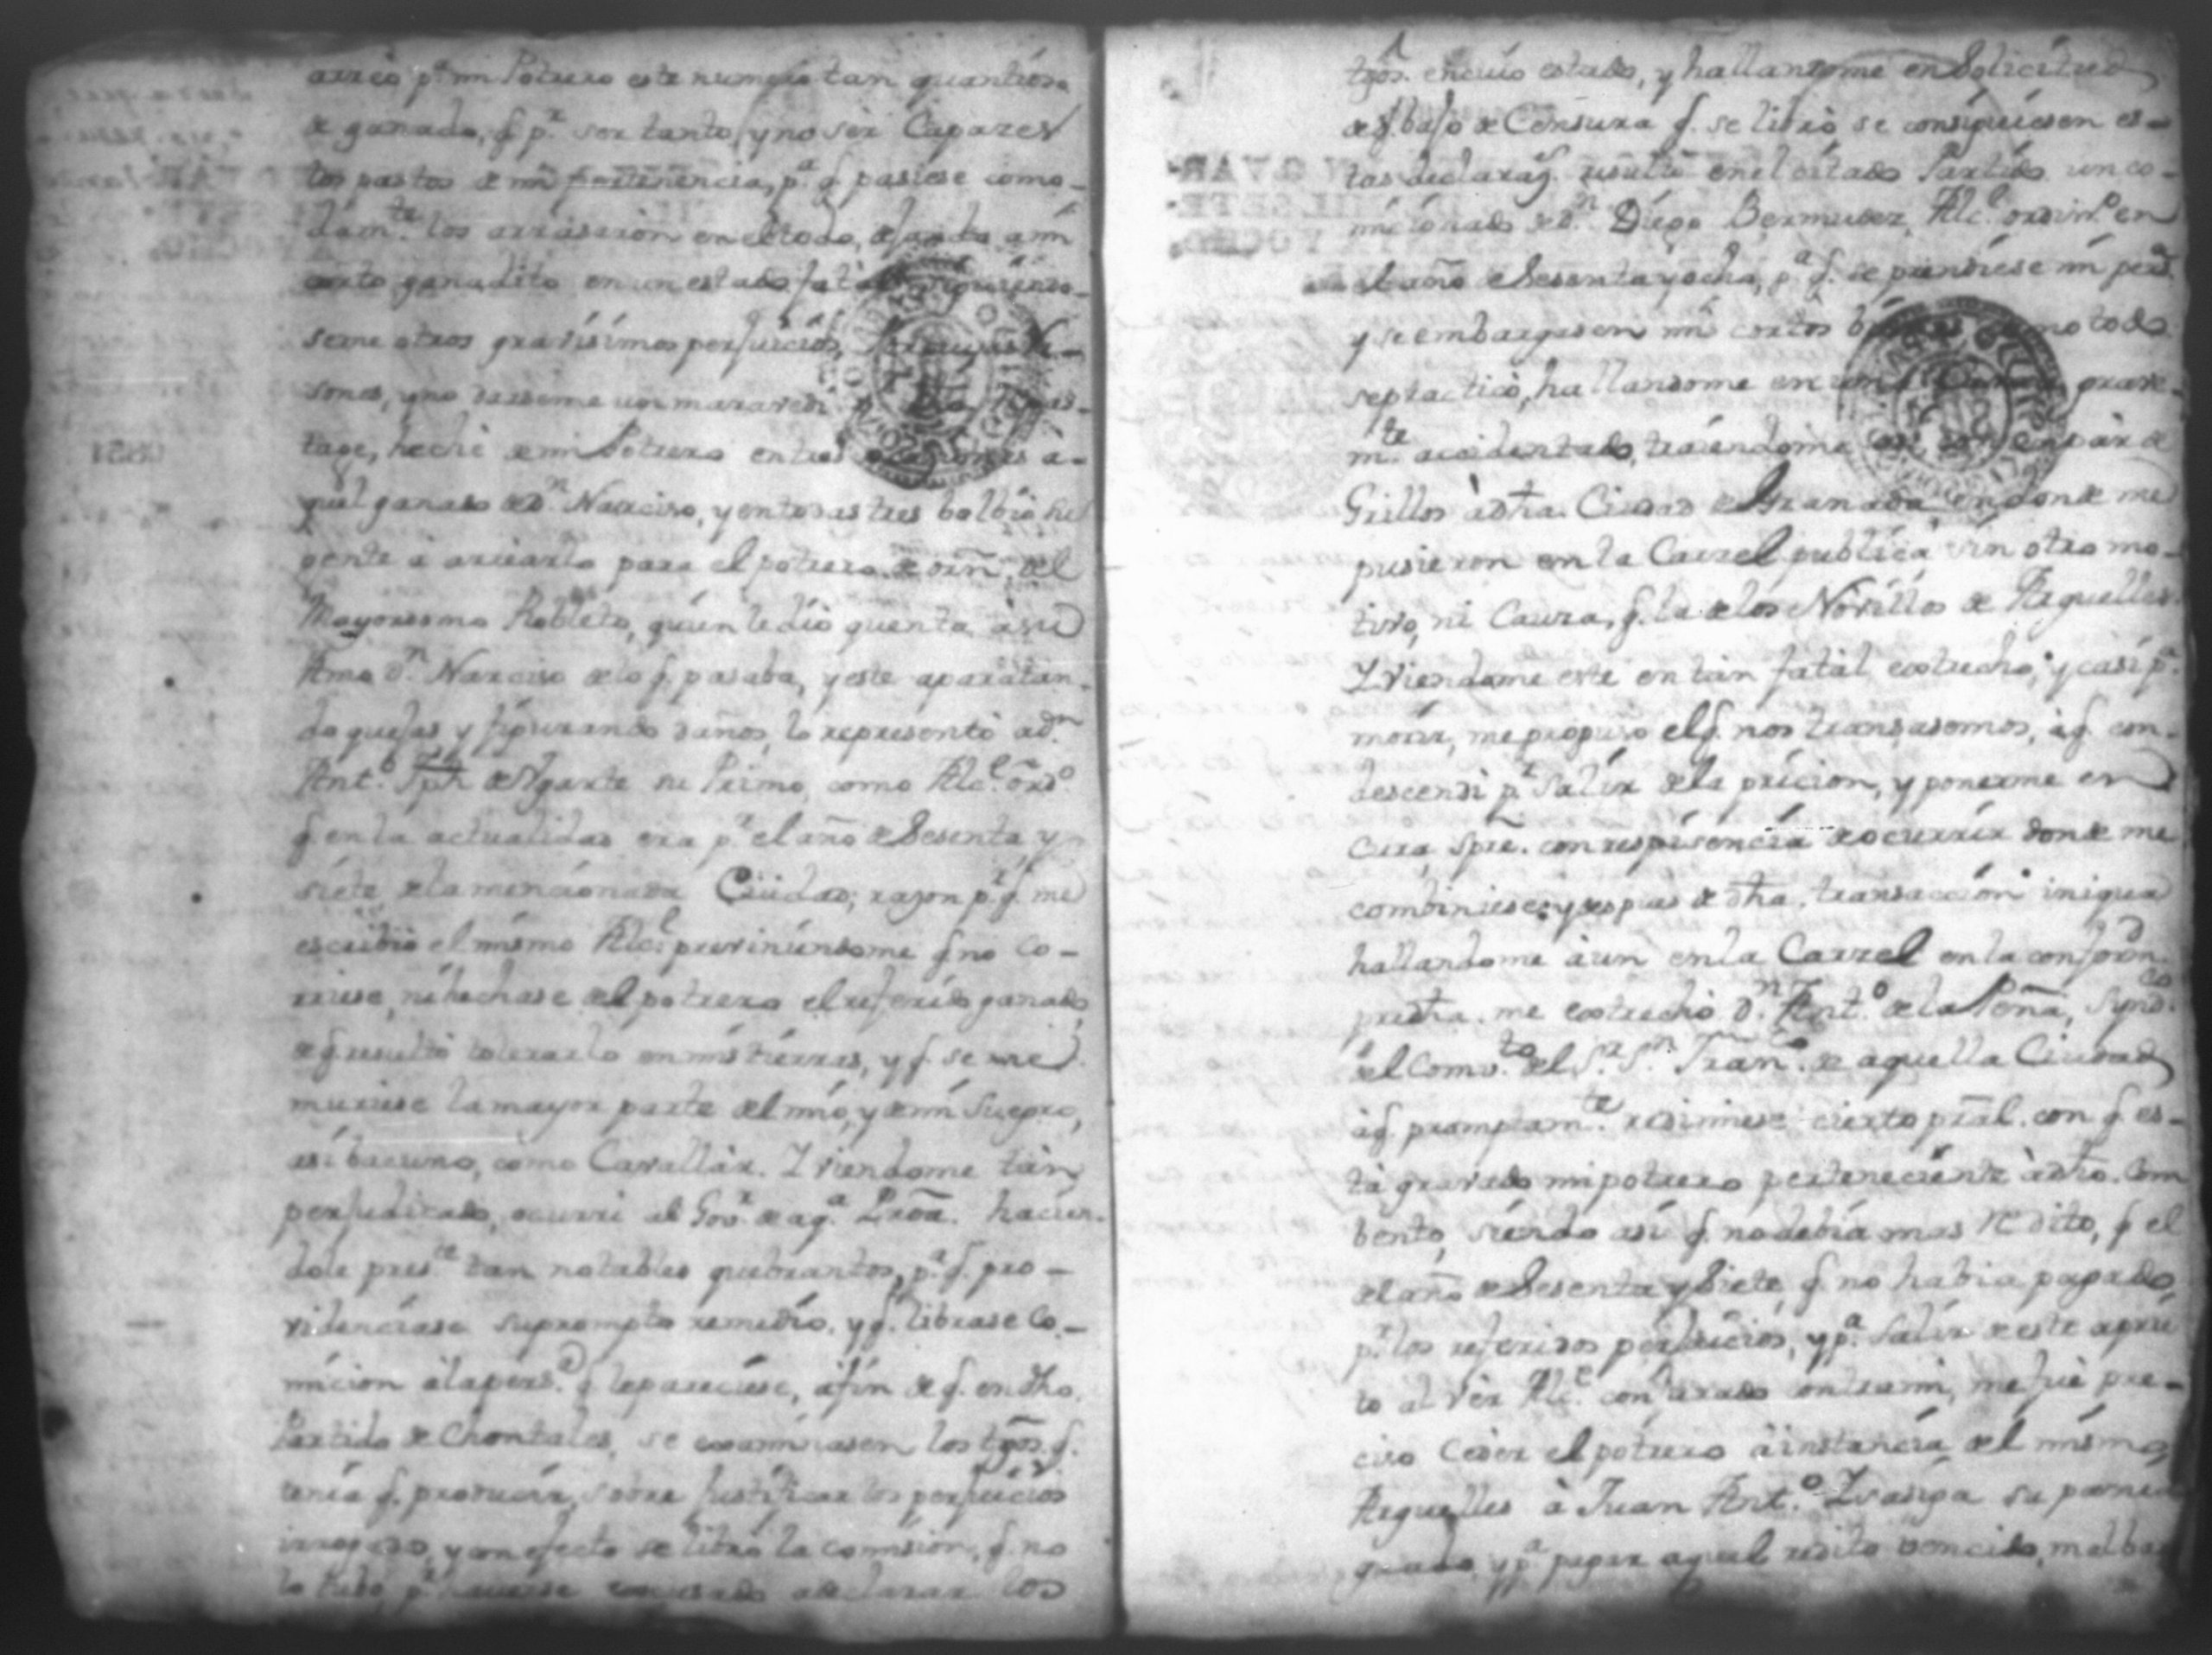 arreó pª mi Potrero este numero tan quantioso
de ganado, q̃ pr. ser tanto, y no ser Capazes
los pastos de mi pertenencia, pª q̃ pasiese como-
damte. los arrasaron en el todo, dejando a mi
corto ganadito en un estado fatal
seme otros gravisimos perjuicios,
sones, y no darseme un maravedi
tage, heché de mi Potrero en tres ocasiones a-
quel ganado de Dn. Narciso, y en todas tres bolbió su
gente à arriarlo para el potrero de orñ. del
Mayordomo Robleto, quien le dió quenta à su
Amo Dn. Narciso de lo q̃ pasaba, y este aparatan-
do quejas y figurando daños, lo representó a Dn.
Anto. Jph de Ugarte su Primo, como Alce. ordo.
q̃ en la actualidad era pr. el año de Sesenta y
siete de la mencionada Ciudad; razon pr. q̃ me
escribió el mismo Alcl. previniendome q̃ no co-
rriese, ni hechase del potrero el referido ganado,
de q̃ resultó tolerarlo en mis tierras, y q̃ se me
muriese la mayor parte del mio, y de mi Suegro,
asi bacuno, como Cavallàr. Y viendome tàn
perjudicado, ocurri al Govr. de aqª. Proª. hacien-
dole preste. tan notables quebrantos, pª. q̃. pro-
videnciase su prompto remedio, y q̃. librase Co-
micion à la persª. q̃ le pareciese, afin de q̃. en dho.
Partido de Chontales, se examinasen los tgos. q̃.
tenía q̃. producir, sobre justificar los perjuicios
irrogados, y con efecto se libró la comision, q̃. no
lo tubo, pr. haverse escusado a declarar los
tgos. en cuio estado, y hallandome en Solicitud
de q̃. bajo de Censura q̃. se libró se consiguiesen es-
tas declaras. resultó en el citado Partido un co-
micionado de Dn. Diego Bermudez, Alcl. ordino. en
el año de Sesenta y ocho, pª. q̃. se prendiese mi persª.
y se embargasen mis cortos bienes como todo
se practicó, hallandome en una Cama grave-
mte. accidentado, traiendome con un par de
Grillos à dha. Ciudad de Granada en donde me
pusieron en la Carzel publica sin otro mo-
tivo, ni Causa, q̃. la de los Novillos de Arguelles.
Y viendome este en tàn fatal estrecho, y casi pª.
morir, me propuso el q̃. nos transasemos, à q̃. con-
descendi pr. Salir de la pricion, y ponerme en
Cura, spre. con respisencia de ocurrir donde me
combiniese; y despues de dha. transaccion iniqua
hallandome àun en la Carzel en la conformd.
predha. me estrechó Dn. Anto. de la Peña, Syndco.
del Comvto. del Sr. Sn. Franco. de aquella Ciudad
à q̃. promptamte. redimiese cierto pral. con q̃. es-
tà gravado mi potrero perteneciente à dho. Com
bento, siendo asi q̃. no debía mas redito, q̃ el
del año de Sesenta y Siete q̃. no habia pagado,
pr. los referidos perjuicios, y pª. Salir de este aprie
to al ver Alce. conjurado contra mi, me fué pre-
ciso Ceder el potrero à instancia del mismo
Arguelles à Juan Anto. Yrasiga su panea
guado, y pª. pagar aquel redito vencido, malba